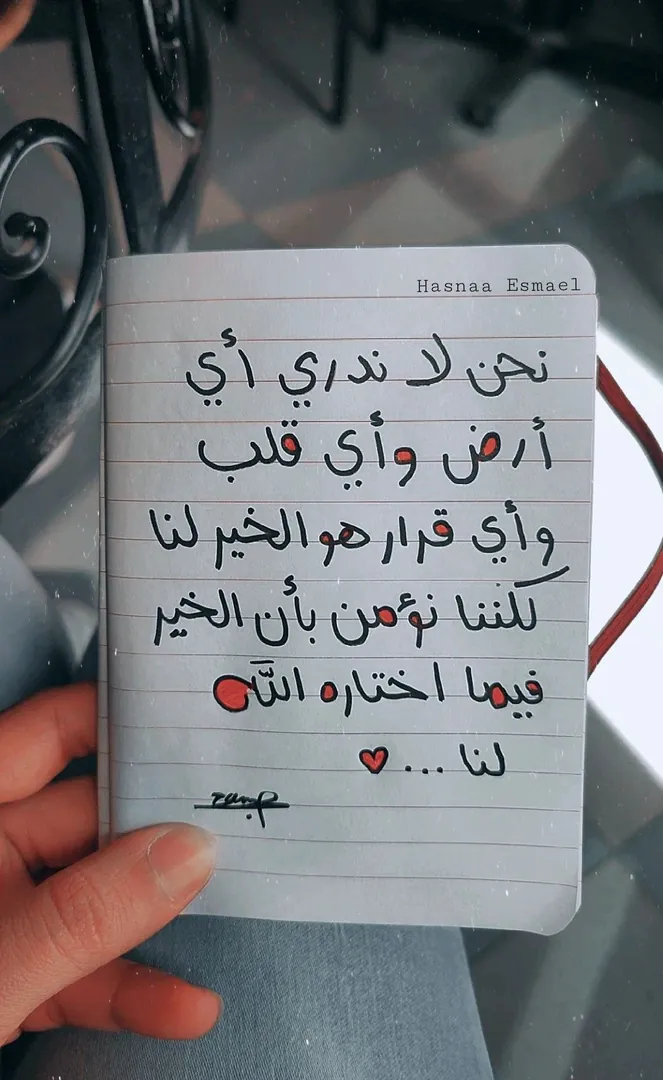 Hasnaa Esmael
نحن لا ندري أي
أرض وأي قلب
وأي قرار هو الخير لنا
لكننا نؤمن بأن الخير
فيما اختاره اللَّه
لنا ... ♥